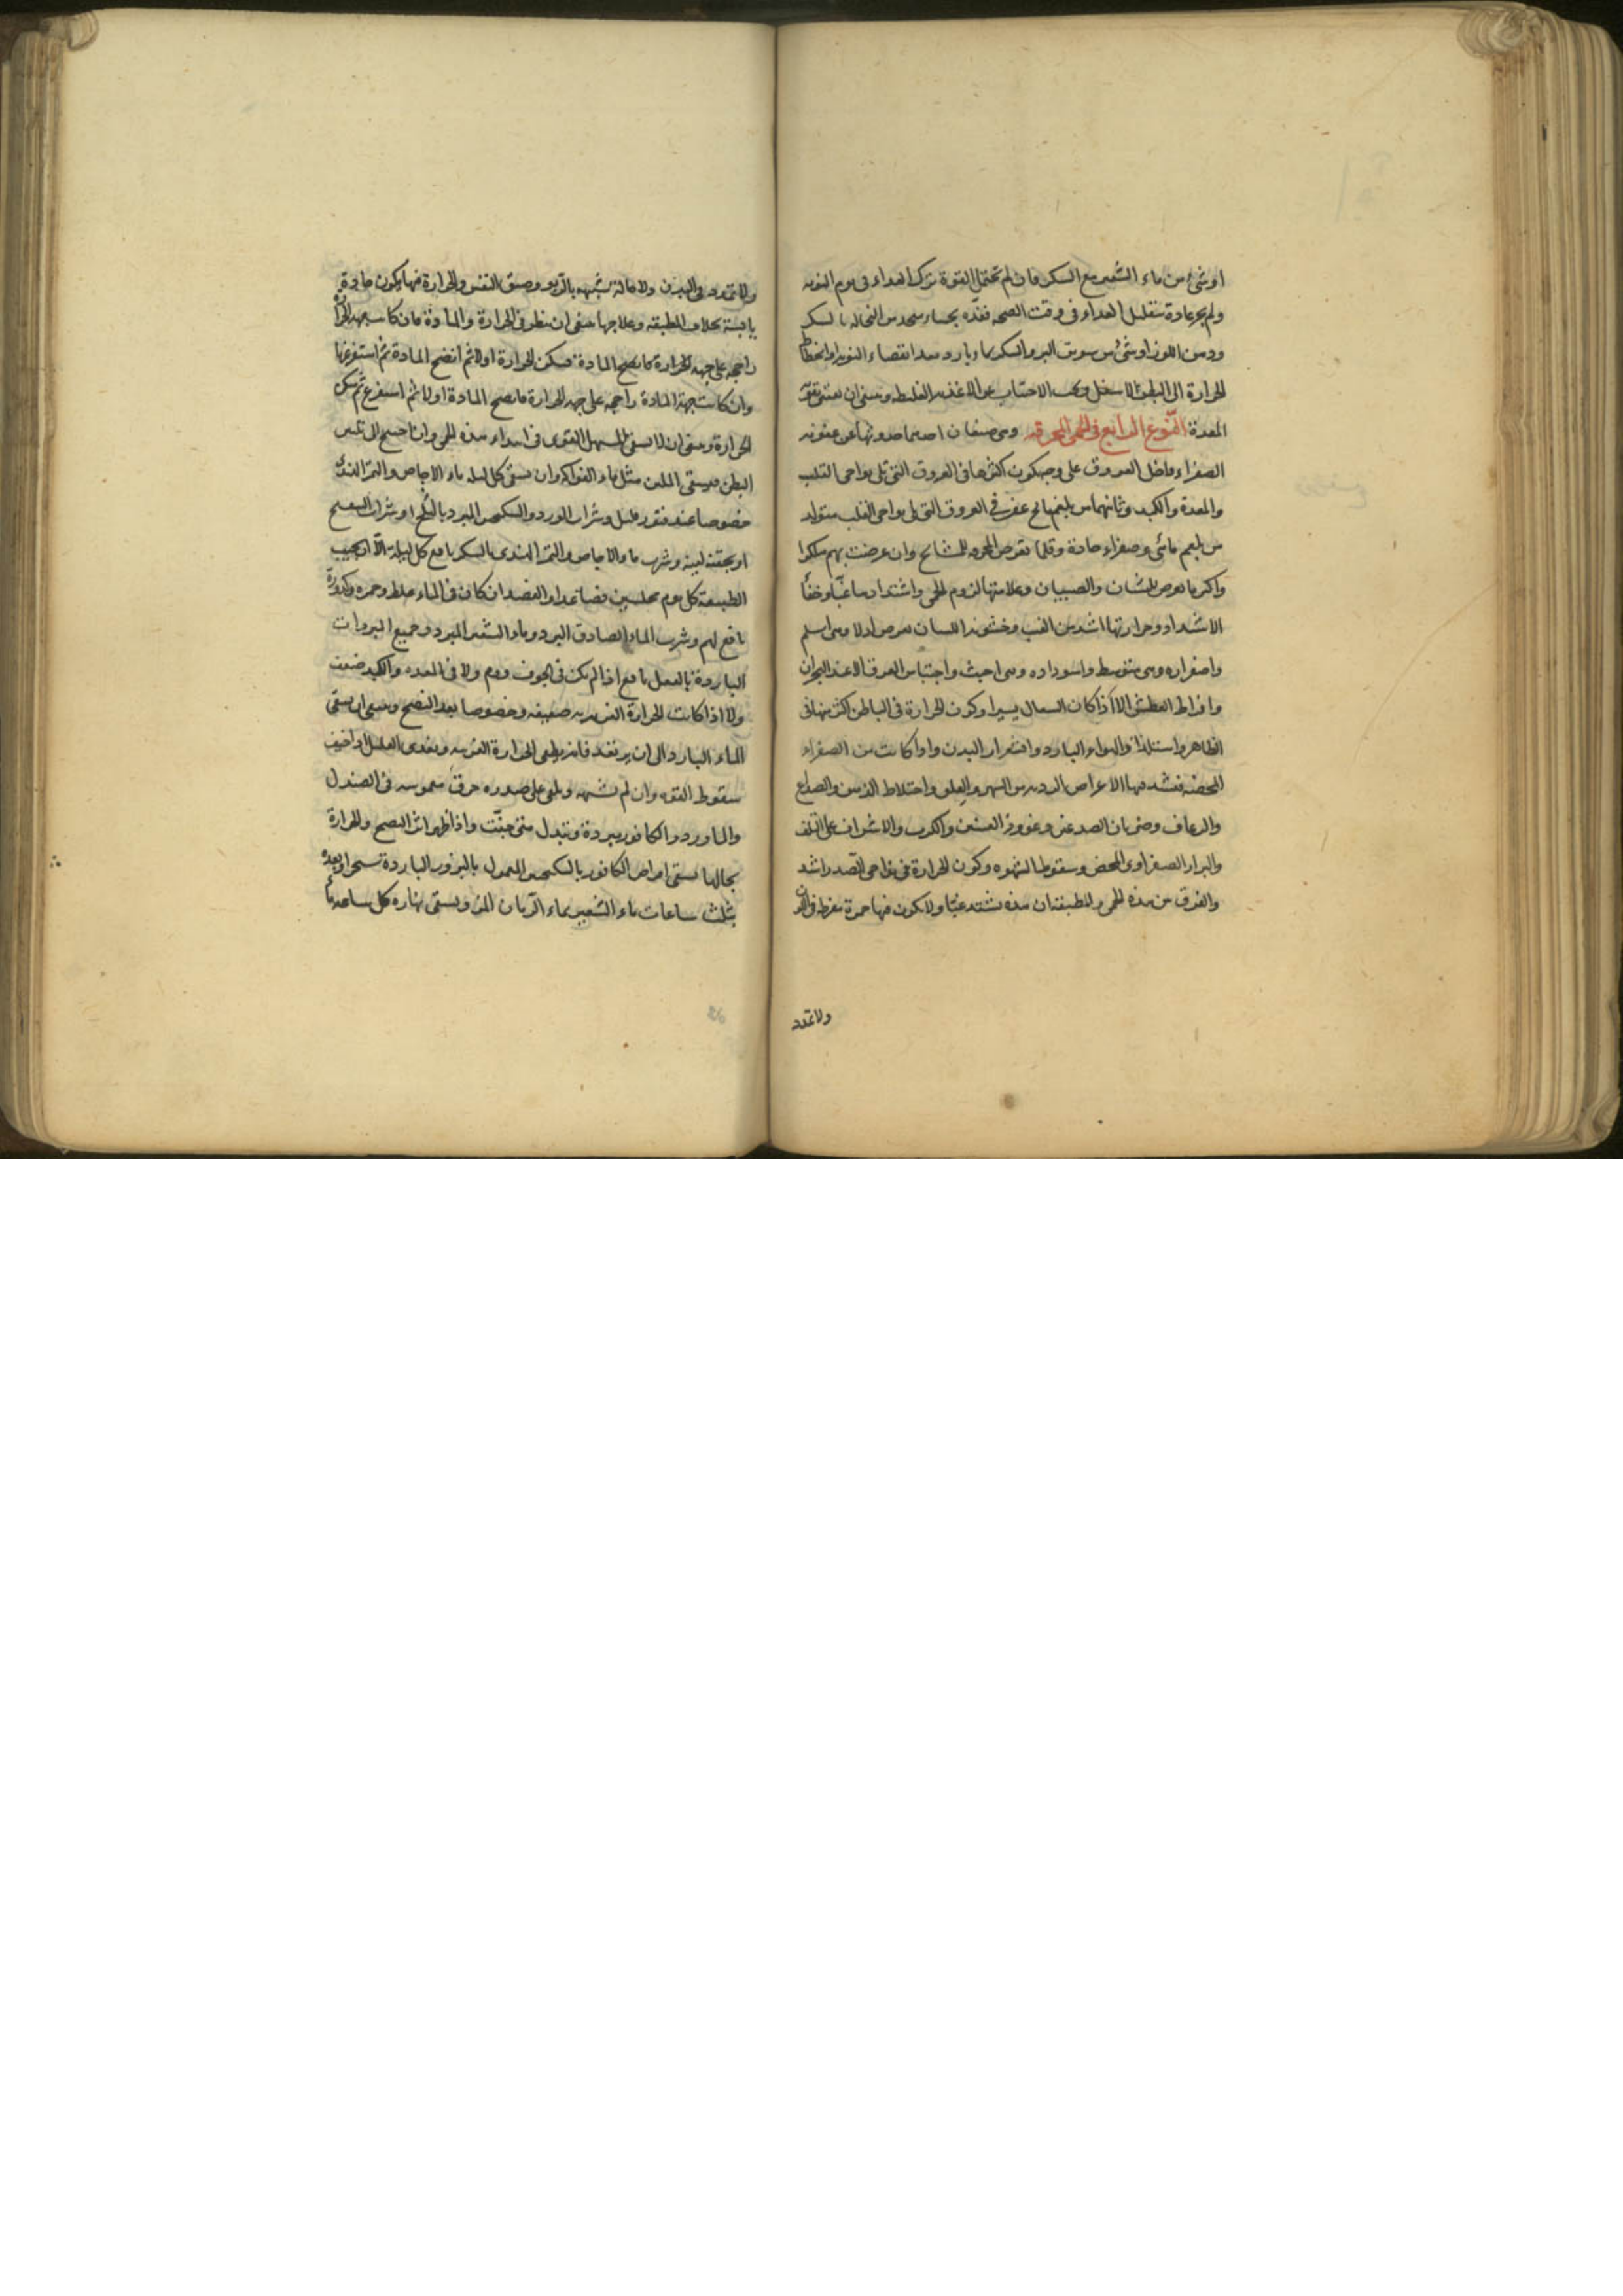 او شئ من ماء الشعير مع السكر فان لم تحتمل القوة ترك الغداء فى يوم النوبه
ولم يجر عادة بتقليل الغداء فى وقت الصحه فغذّه بحساء متخذ من النخاله بالسكر
ودهن اللوز او شئ من سويق البر والسكر بماء بارد بعد انقضاء النوبه او انحطاط
الحرارة الى البطن الاسفل ويجب الاجتناب عن الاغذيه الغليظه وينبغى ان يعتنى بتقوية
المعدة النّوع الرابع فى الحمى المحرقه وهى صنفان احدهما حدوثها عن عفونه
الصفراء داخل العروق على وجه يكون اكثرها فى العروق التى تلى نواحى القلب
والمعدة والكبد وثانيهما من بلغم مالح عفن فى العروق التى تلى نواحى القلب متولد
من بلغم مائى وصفراء حادة وقلما تعرض المحرقه للمشايخ وان عرضت بهم هلكوا
واكثر ما تعرض للشبان والصبيان وعلامتها لزوم الحمى واشتدادها غبّا وخفأ
الاشتداد وحرارتها اشد من الغب وخشونة اللسان تعرض اولا وهى اسلم
واصفراره وهى متوسط واسوداده وهى اخبث واحتباس العرق الا عند البحران
وافراط العطش الا اذا كان السعال يسيرا وكون الحرارة فى الباطن اكثر منها فى
الظاهر واستلذاذ الهواء البارد واقشعرار البدن واذا كانت من الصفراء
المحضه فتشد فيها الاعراض الرديه من السهر والقلق واختلاط الذهن والصداع
والرعاف وضربان الصدغين وغؤور العينين والكرب والاشراف على التلف
والبراز الصفراوى المحض وسقوط الشهوه وكون الحرارة فى نواحى الصّدر اشد
والفرق بين هذه الحمى والمطبقه ان هذه تشتد غبّا ولا يكون فيها حمرة مفرطه فى اللون
ولا تمدد
ولا تمدد فى البدن ولا حالة شبيهه بالرّبو وضيق النفس والحرارة فيها يكون حادة
يابسة بخلاف المطبقه وعلاجها ينبغى ان ينظر فى الحرارة والمادة فان كانت جهه الحرارة
راجحه على جهه الحرارة كانضج المادة فسكن الحرارة اولا ثم انضج المادة ثم استفرغها
وان كانت جهة المادة راجحه على جهه الحرارة فانضج المادة اولا ثم استفرغ ثم سكن
الحرارة وينبغى ان لا يسقى المسهل القوى فى ابتداء هذه الحمى وان احتيج الى تليين
البطن فيسقى الملين مثل ماء الفواكه وان يسقى كل ليله ماء الاجاص والتمر الهندى
خصوصا عند فتور قليل وشراب الورد والسكنجبين المبرد بالثلج او شراب البنفسج
او بحقنة لينه وشرب ماء الاجاص والتمر الهندى بالسكر نافع كل ليلة الّا ان يجيب
الطبيعة كل يوم مجلسين فصاعدا والفصد ان كان فى الماء غلظ وحمره وكدورة
نافع لهم وشرب الماء الصادق البرد وماء الشعير المبرد وجميع المبردات
الباردة بالفعل نافع اذا لم يكن فى الجوف ورم ولا فى المعده والكبد ضعف
ولا اذا كانت الحرارة الغريزيه ضعيفه وخصوصا بعد النضج وينبغى ان يسقى
الماء البارد الى ان يرتعد فانه يطفى الحرارة الغريبه ويغذى العليل اذا خيف
سقوط القوه وان لم يشتهه ويلقى على صدره خرقة مغموسه فى الصندل
والماورد والكافور مبردة وتبدل متى جفّت واذا ظهر اثر النضج والحرارة
بحالها يسقى اقراص الكافور بالسكنجبين المعمول بالبزور الباردة سحرا وبعده
بثلث ساعات ماء الشعير بماء الرّمان المز ويسقى نهاره كل ساعه ماء